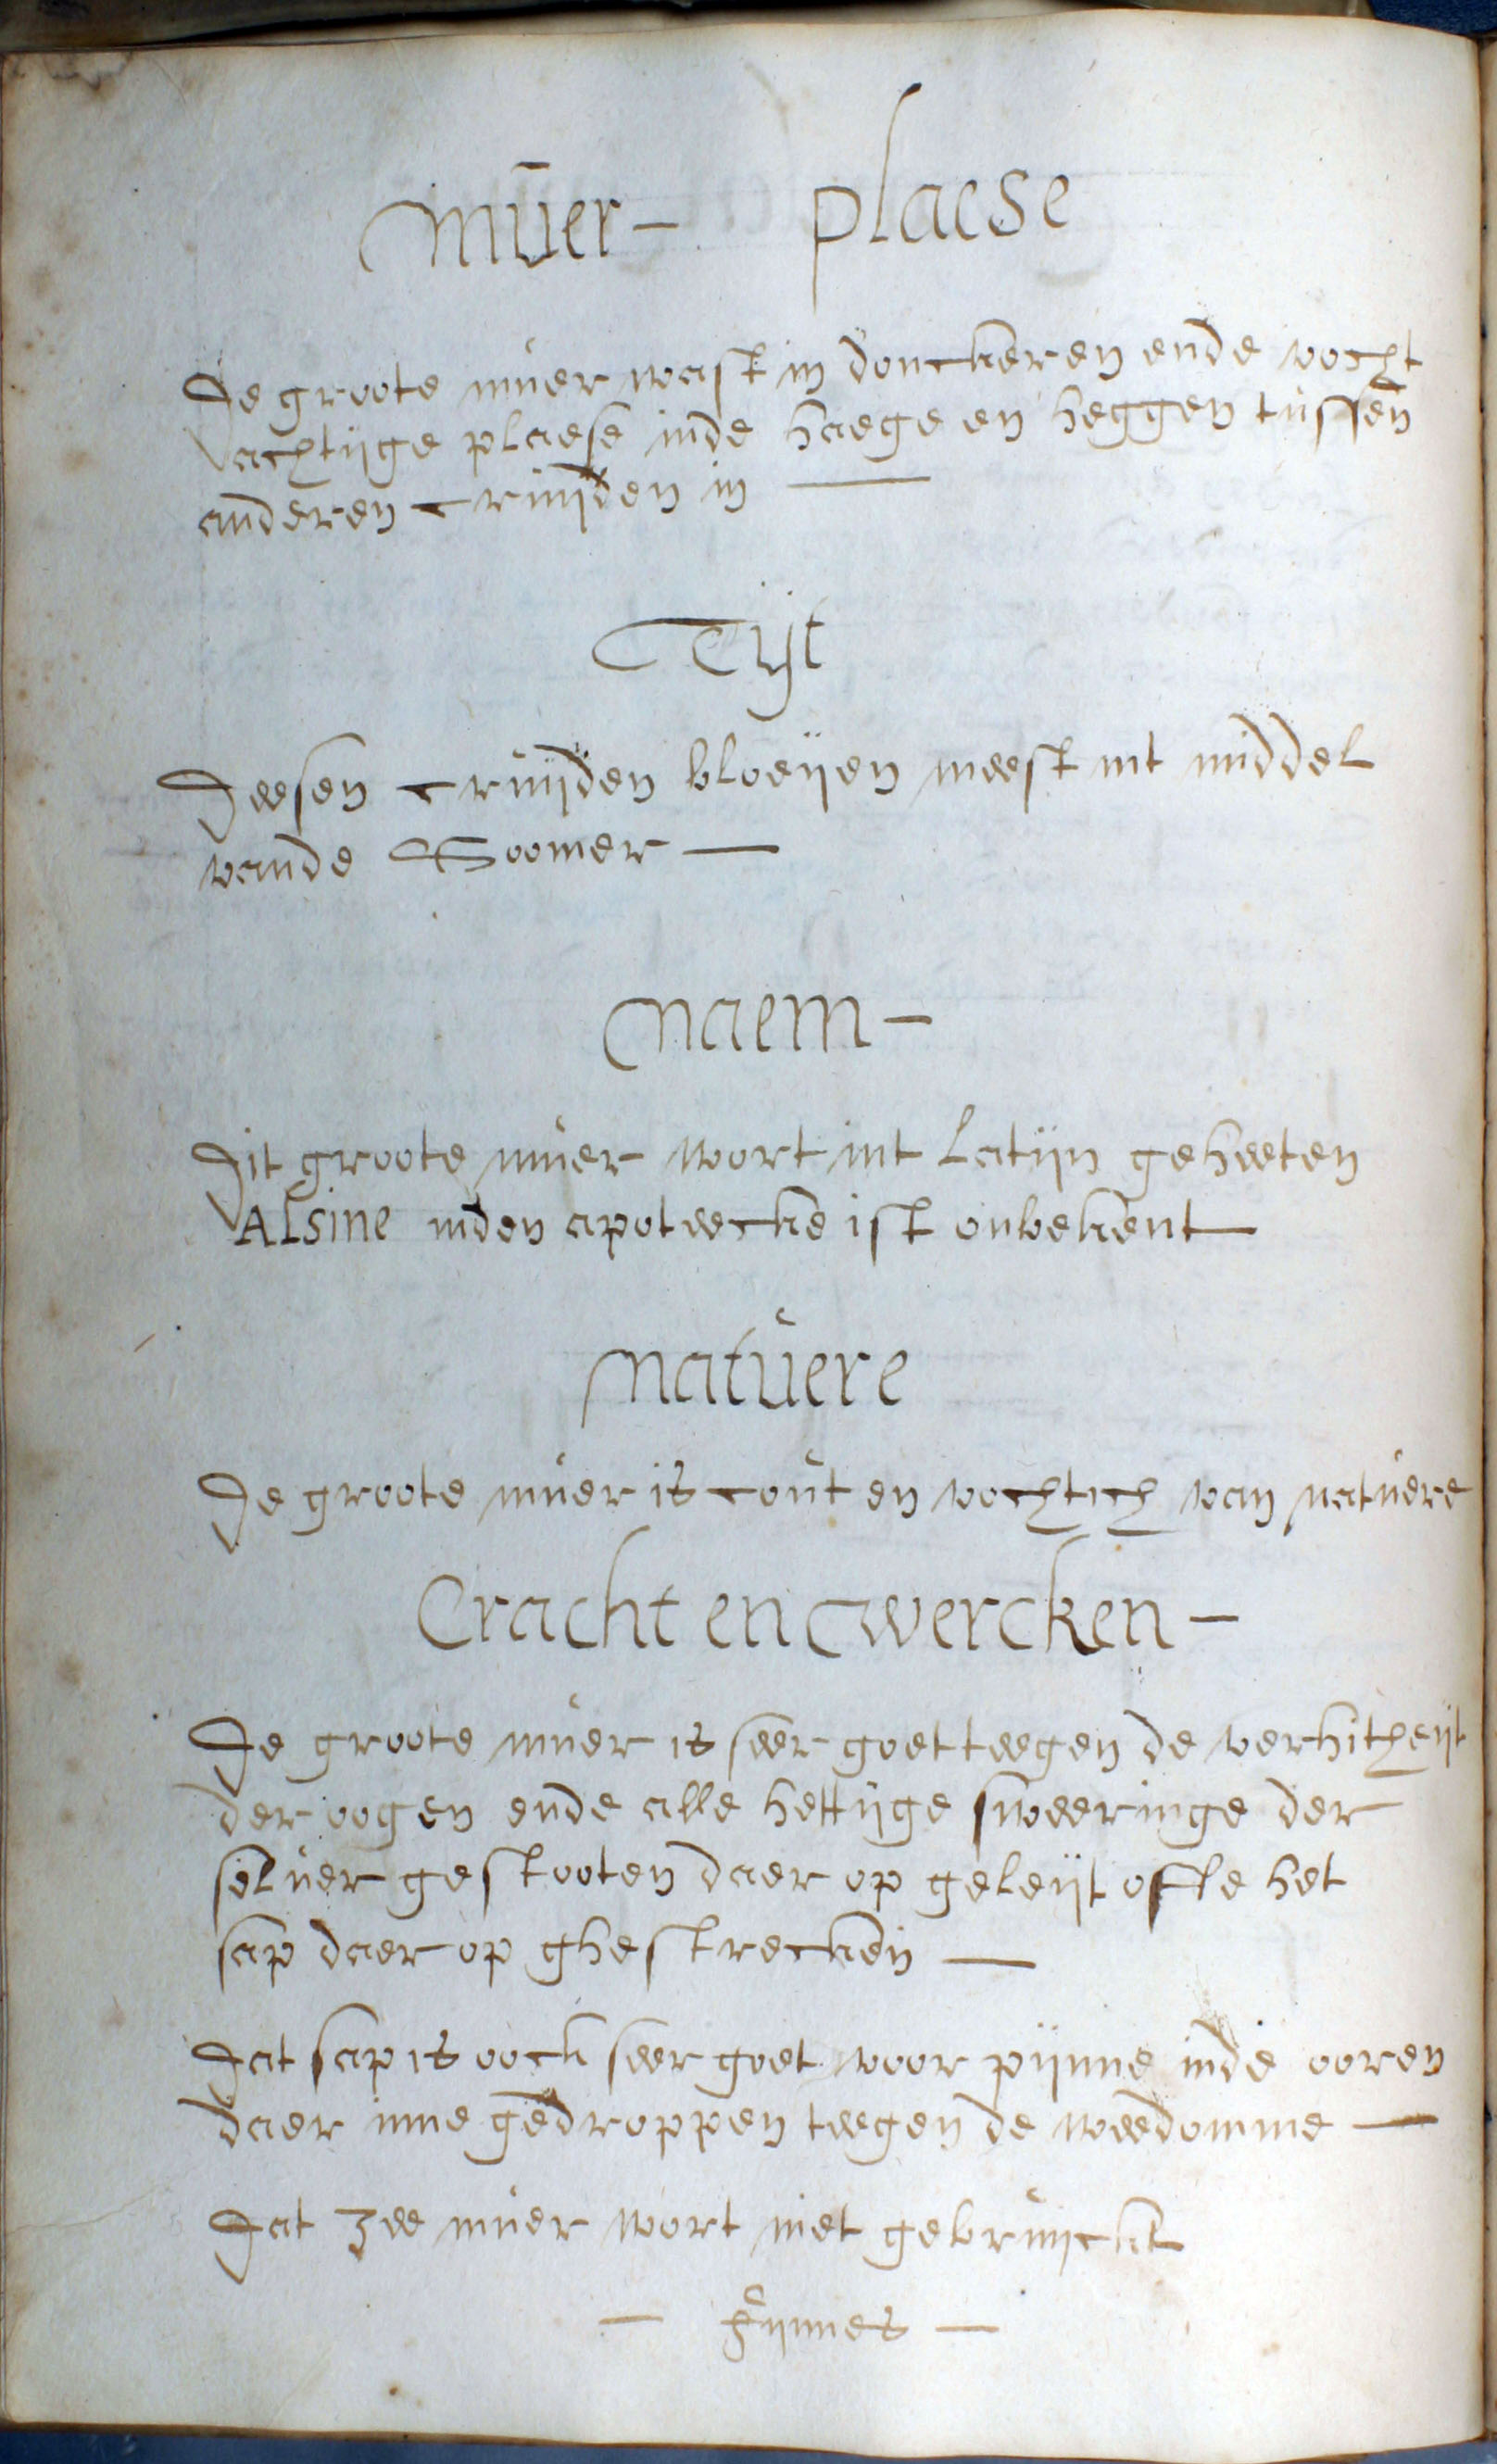 Muer - plaese
De groote muer wast in donckeren ende vocht
achtijge plaese inde haege en heggen tussen
anderen cruijden in —
Tijt
Deesen cruijden bloeijen meest int middel
vande Soomer —
Naem -
Dit groote muer wort int Latijn geheeten
Alsine inden apoteecke ist onbekent
Natuere
De groote muer is cout en vochtich van natuere
Cracht en wercken -
De groote muer is seer goet teegen de verhitheijt
der oogen ende alle hettijge sweeringe der
seluer gestooten daer op geleijt offte het
sap daer op ghestrecken —
Dat sap is oock seer goet voor pijnne inde ooren
daer inne gedroppen teegen de weedomme —
Dat zee muer wort niet gebruijckt
— Fijnnes —